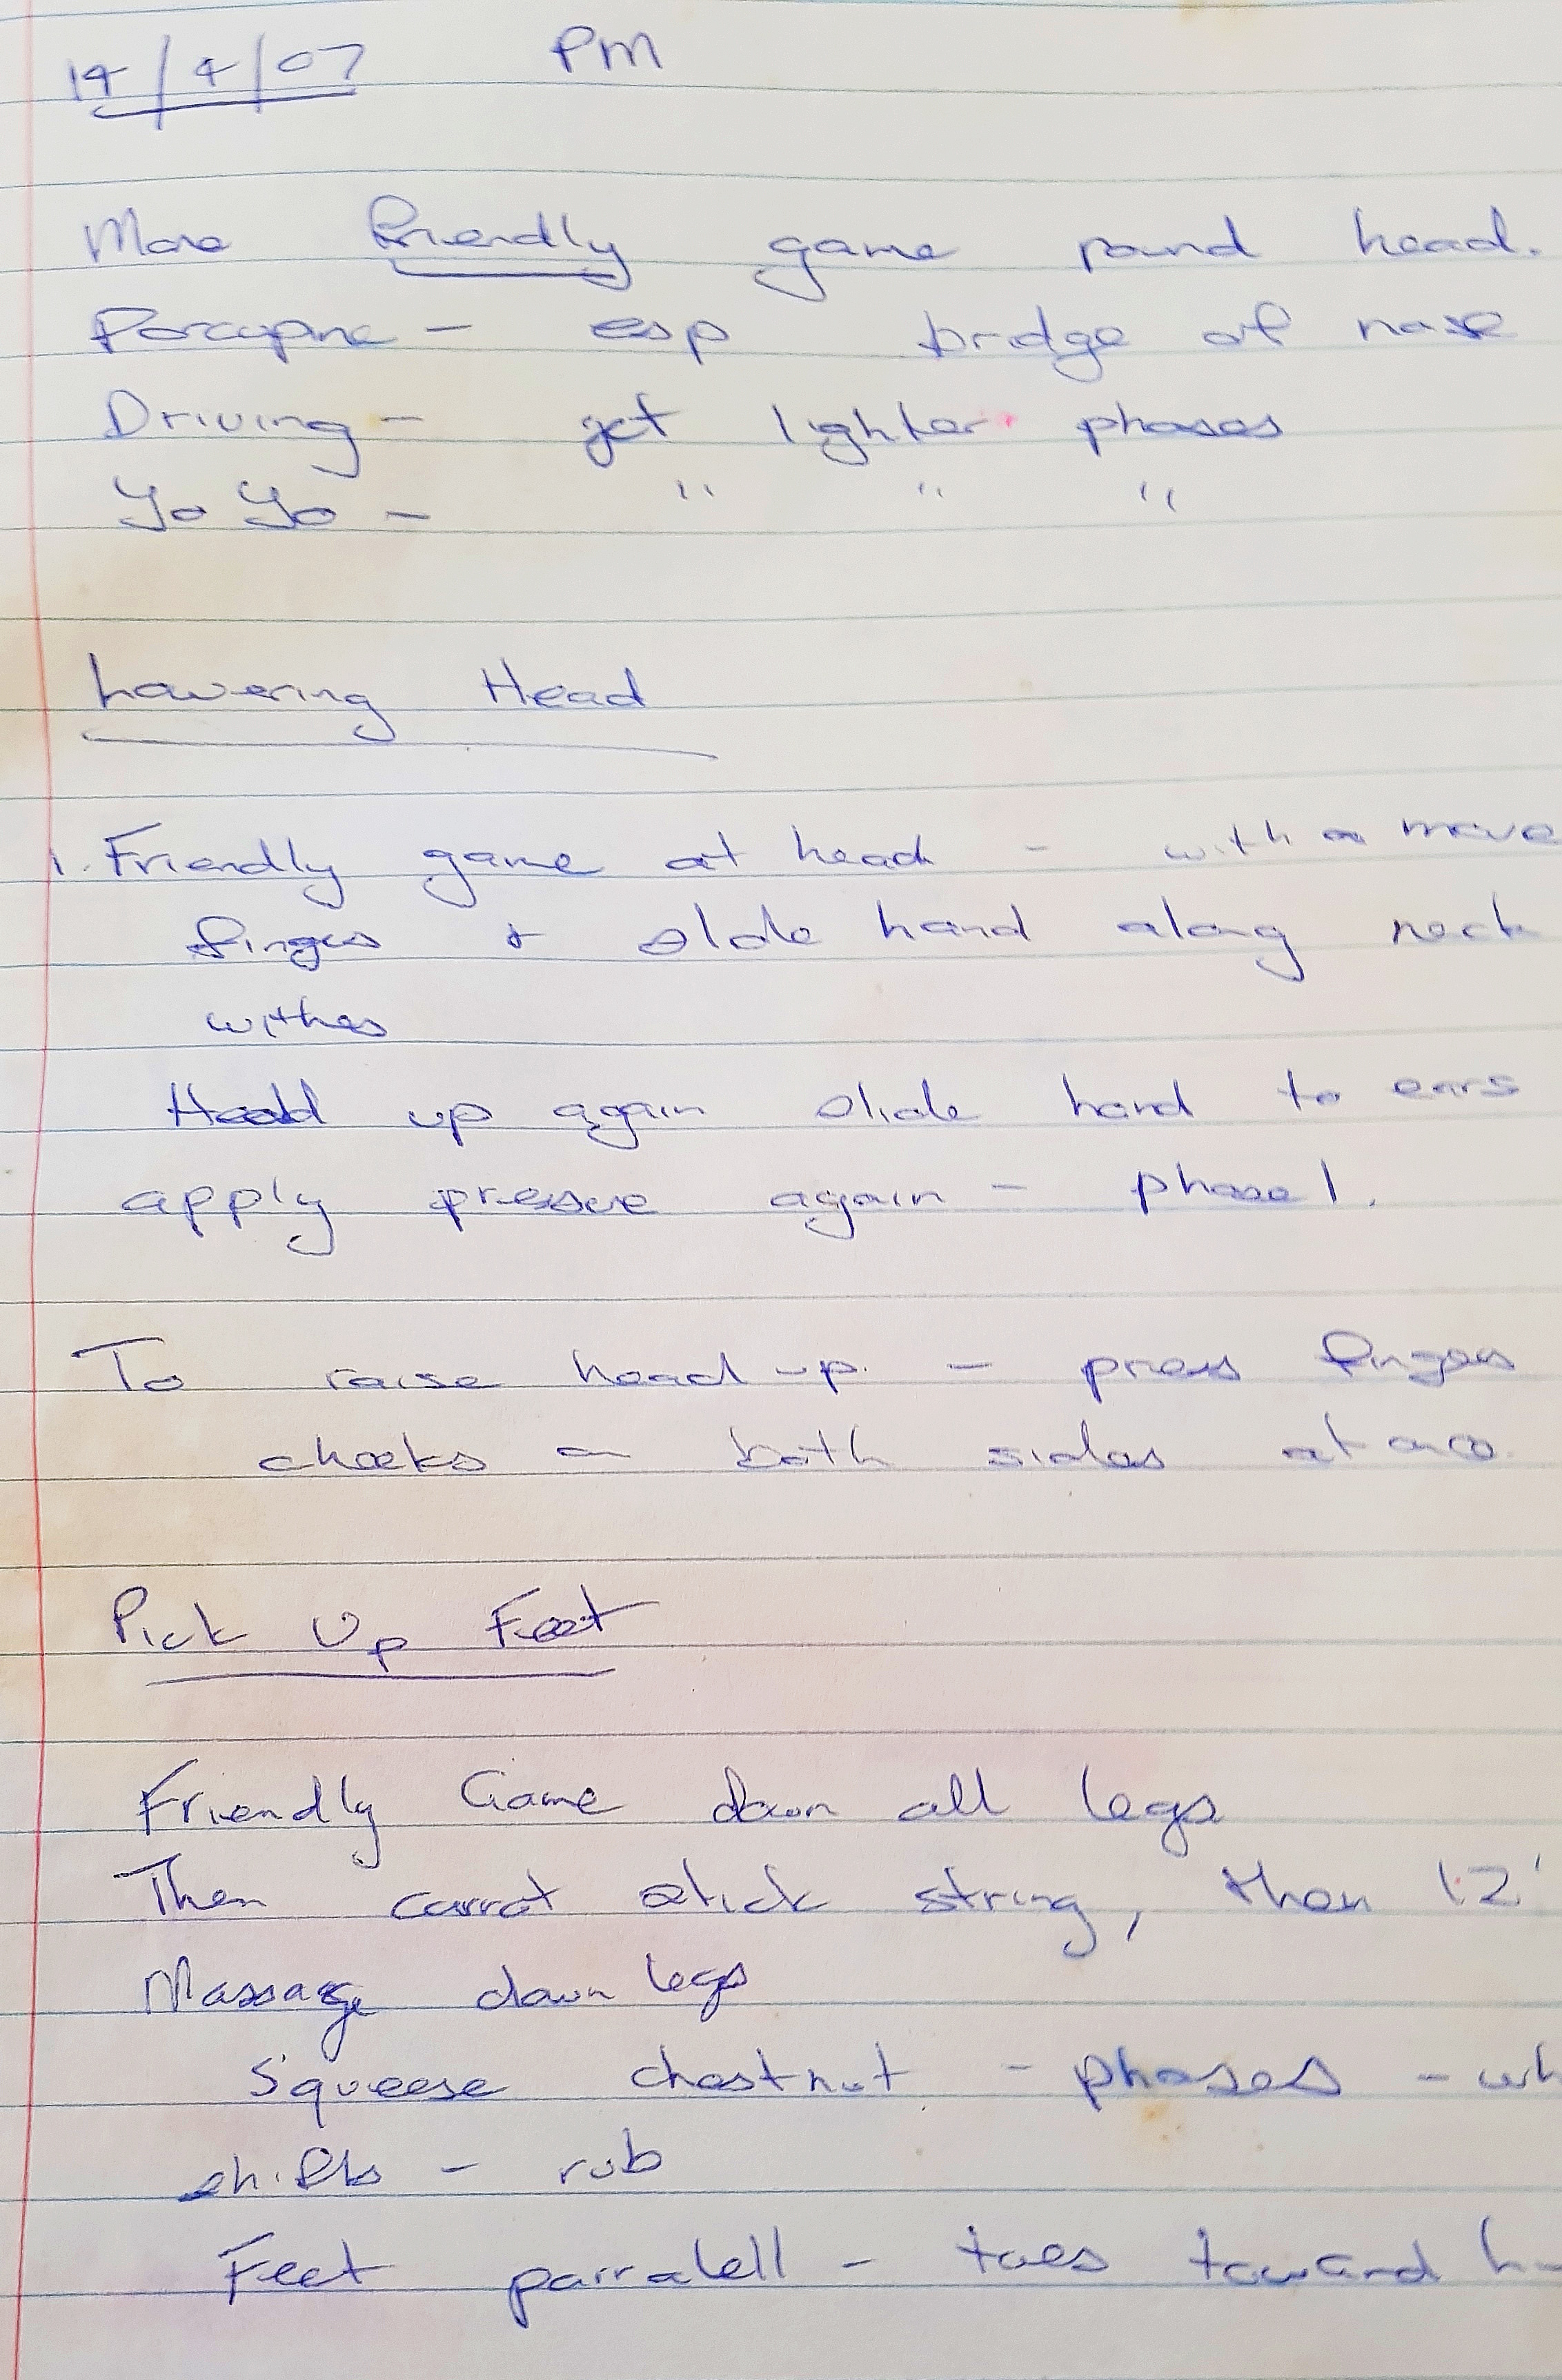 14/4/07 PM
More friendly game round head.
Porcupine - esp bridge of nose
Driving - get lighter phases
Yo Yo - " " "
Lowering Head
1. Friendly game at head - with a move
fingers + slide hand along neck
withes
Head up again slide hand to ears
apply pressure again - phase 1.
To raise head up. - press fingers
cheeks on both sides at
Pick Up Feet
Friendly Game down all legs
Then carrot stick string, then 12'
Massage down legs
Squeese chestnut - phases - wh
shifts - rub
Feet parralell - toes toward h